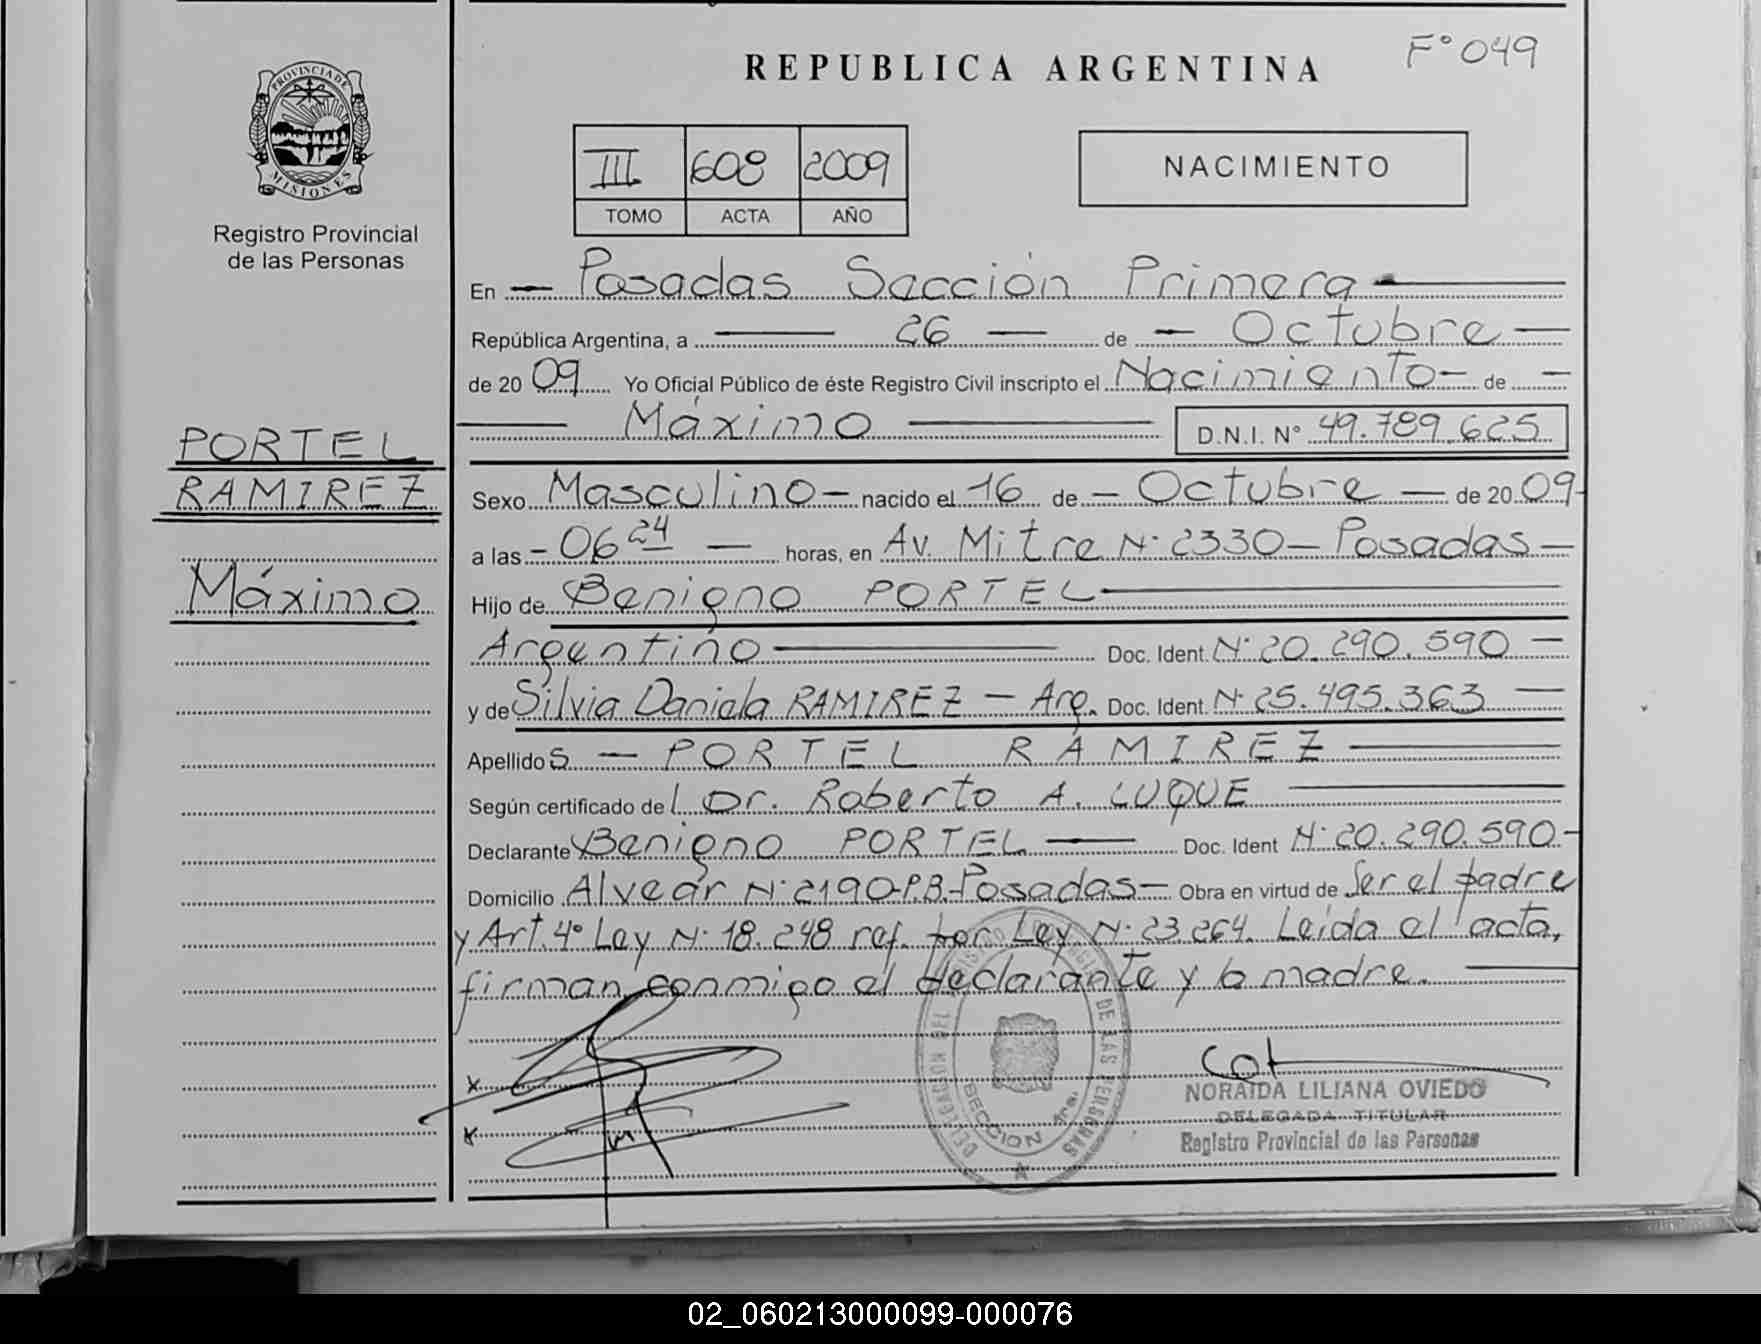 REPUBLICA ARGENTINA
F° 049
PROVINCIA DE MISIONES
Registro Provincial
de las Personas
III 608 2009
TOMO ACTA AÑO
NACIMIENTO
En — Posadas Sección Primera —
República Argentina, a — 26 — de — Octubre —
de 20 09 Yo Oficial Público de éste Registro Civil inscripto el Nacimiento — de —
— Máximo — D.N.I. N° 49.789.625
PORTEL
RAMIREZ
Máximo
Sexo Masculino — nacido el 16 de — Octubre — de 20 09 -
a las - 06 24 — horas, en Av. Mitre N° 2330 — Posadas —
Hijo de Benigno PORTEL —
Argentino — Doc. Ident. N° 20.290.590 —
y de Silvia Daniela RAMIREZ — Arg. Doc. Ident. N° 25.495.363 —
Apellido s — PORTEL RAMIREZ —
Según certificado de l Dr. Roberto A. LUQUE —
Declarante Benigno PORTEL — Doc. Ident N° 20.290.590 -
Domicilio Alvear N° 2190-P.B.-Posadas — Obra en virtud de Ser el padre
y Art. 4° Ley N° 18.248 ref. por Ley N° 23.264. Leída el acta,
firman conmigo el declarante y la madre. —
x
x
DE LAS PERSONAS
SECCION 1ra.
NORAIDA LILIANA OVIEDO
DELEGADA TITULAR
Registro Provincial de las Personas
02_060213000099-000076